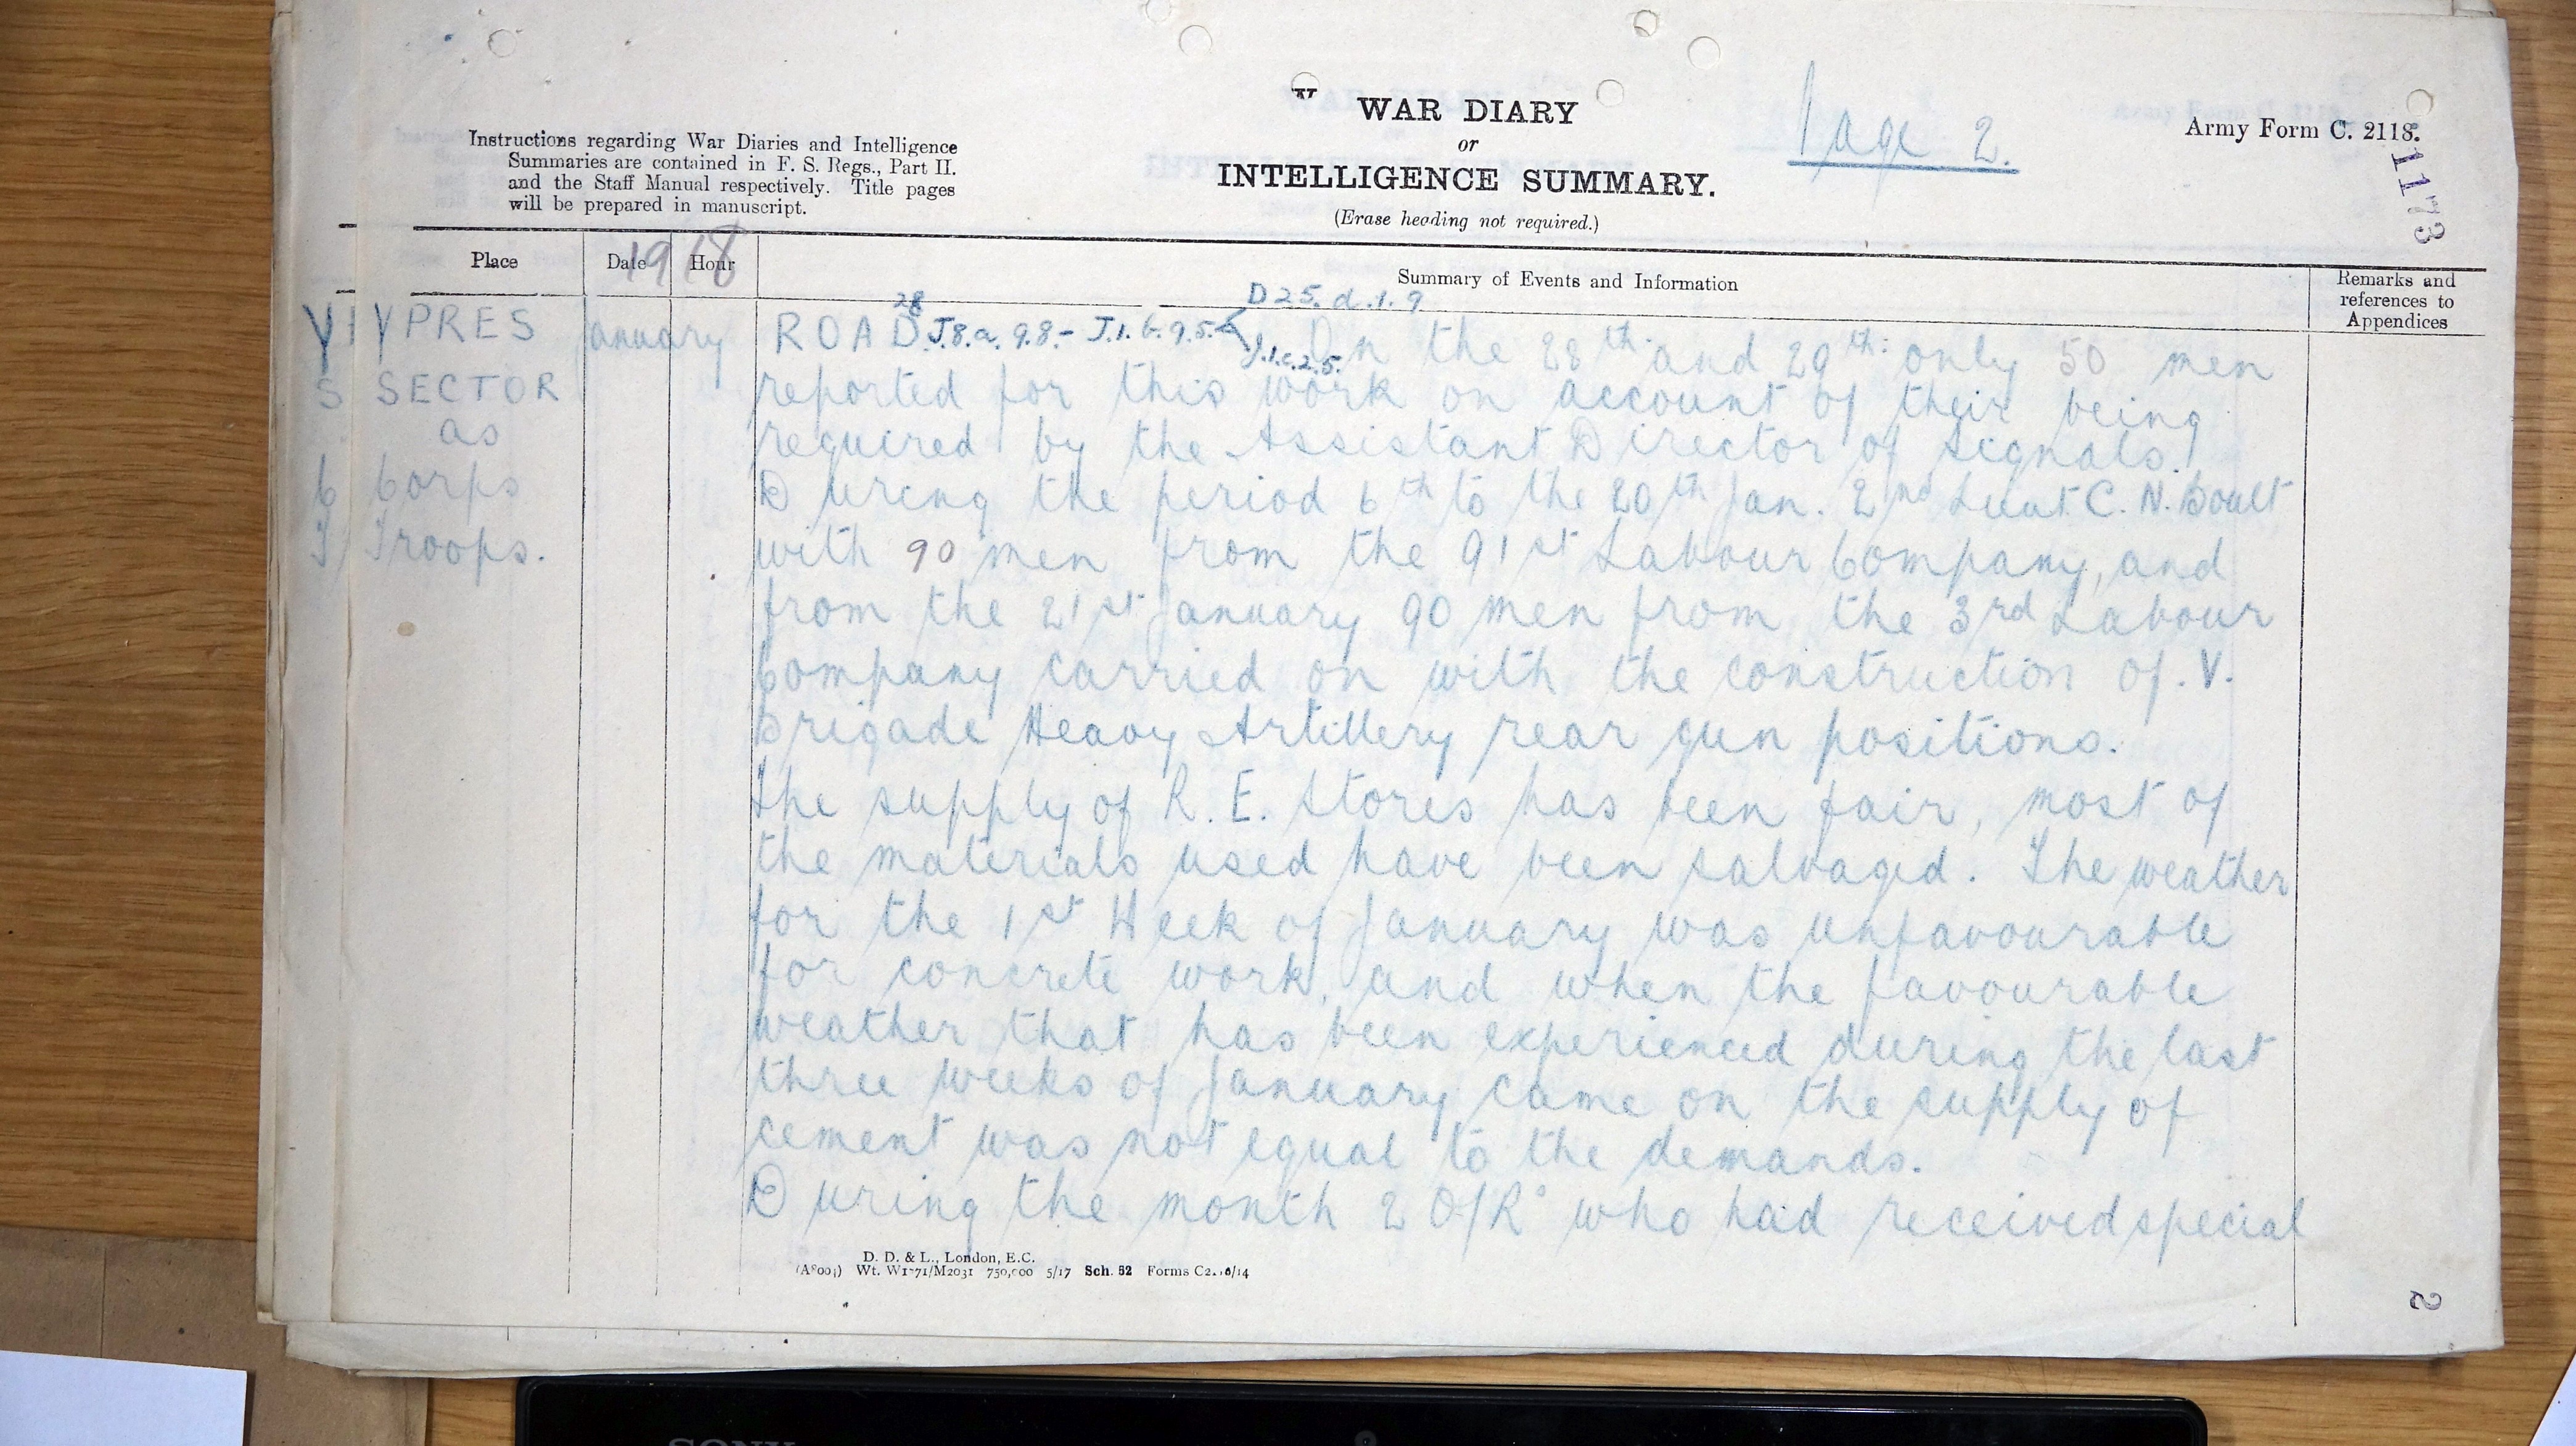 WAR DIARY
or
INTELLIGENCE SUMMARY.
(Erase heading not required.)
Page 2.
Army Form C. 2118.
1173
Instructions regarding War Diaries and Intelligence
Summaries are contained in F. S. Regs., Part II.
and the Staff Manual respectively. Title pages
will be prepared in manuscript.
1918
Place
Date
Hour
Summary of Events and Information
Remarks and
references to
Appendices
YPRES
SECTOR
as
Corps
Troops.
January
28
D25.d.1.9
ROAD J.8.a.9.8 - J.1.b.9.5. J.1.c.2.5. On the 28th and 29th only 50 men
reported for this work on account of their being
required by the Assistant Director of Signals.
During the period 6th to the 20th Jan. 2nd Lieut. C. N. Boult
with 90 men from the 91st Labour Company, and
from the 21st January 90 men from the 3rd Labour
Company carried on with the construction of V.
Brigade Heavy Artillery rear gun positions.
The supply of R. E. Stores has been fair, most of
the materials used have been salvaged. The weather
for the 1st Week of January was unfavourable
for concrete work, and when the favourable
weather that has been experienced during the last
three weeks of January came on the supply of
cement was not equal to the demands.
During the month 2 O/Rs who had received special
D. D. & L., London, E.C.
750,000 5/17 Sch. 52 Forms
2
SONY